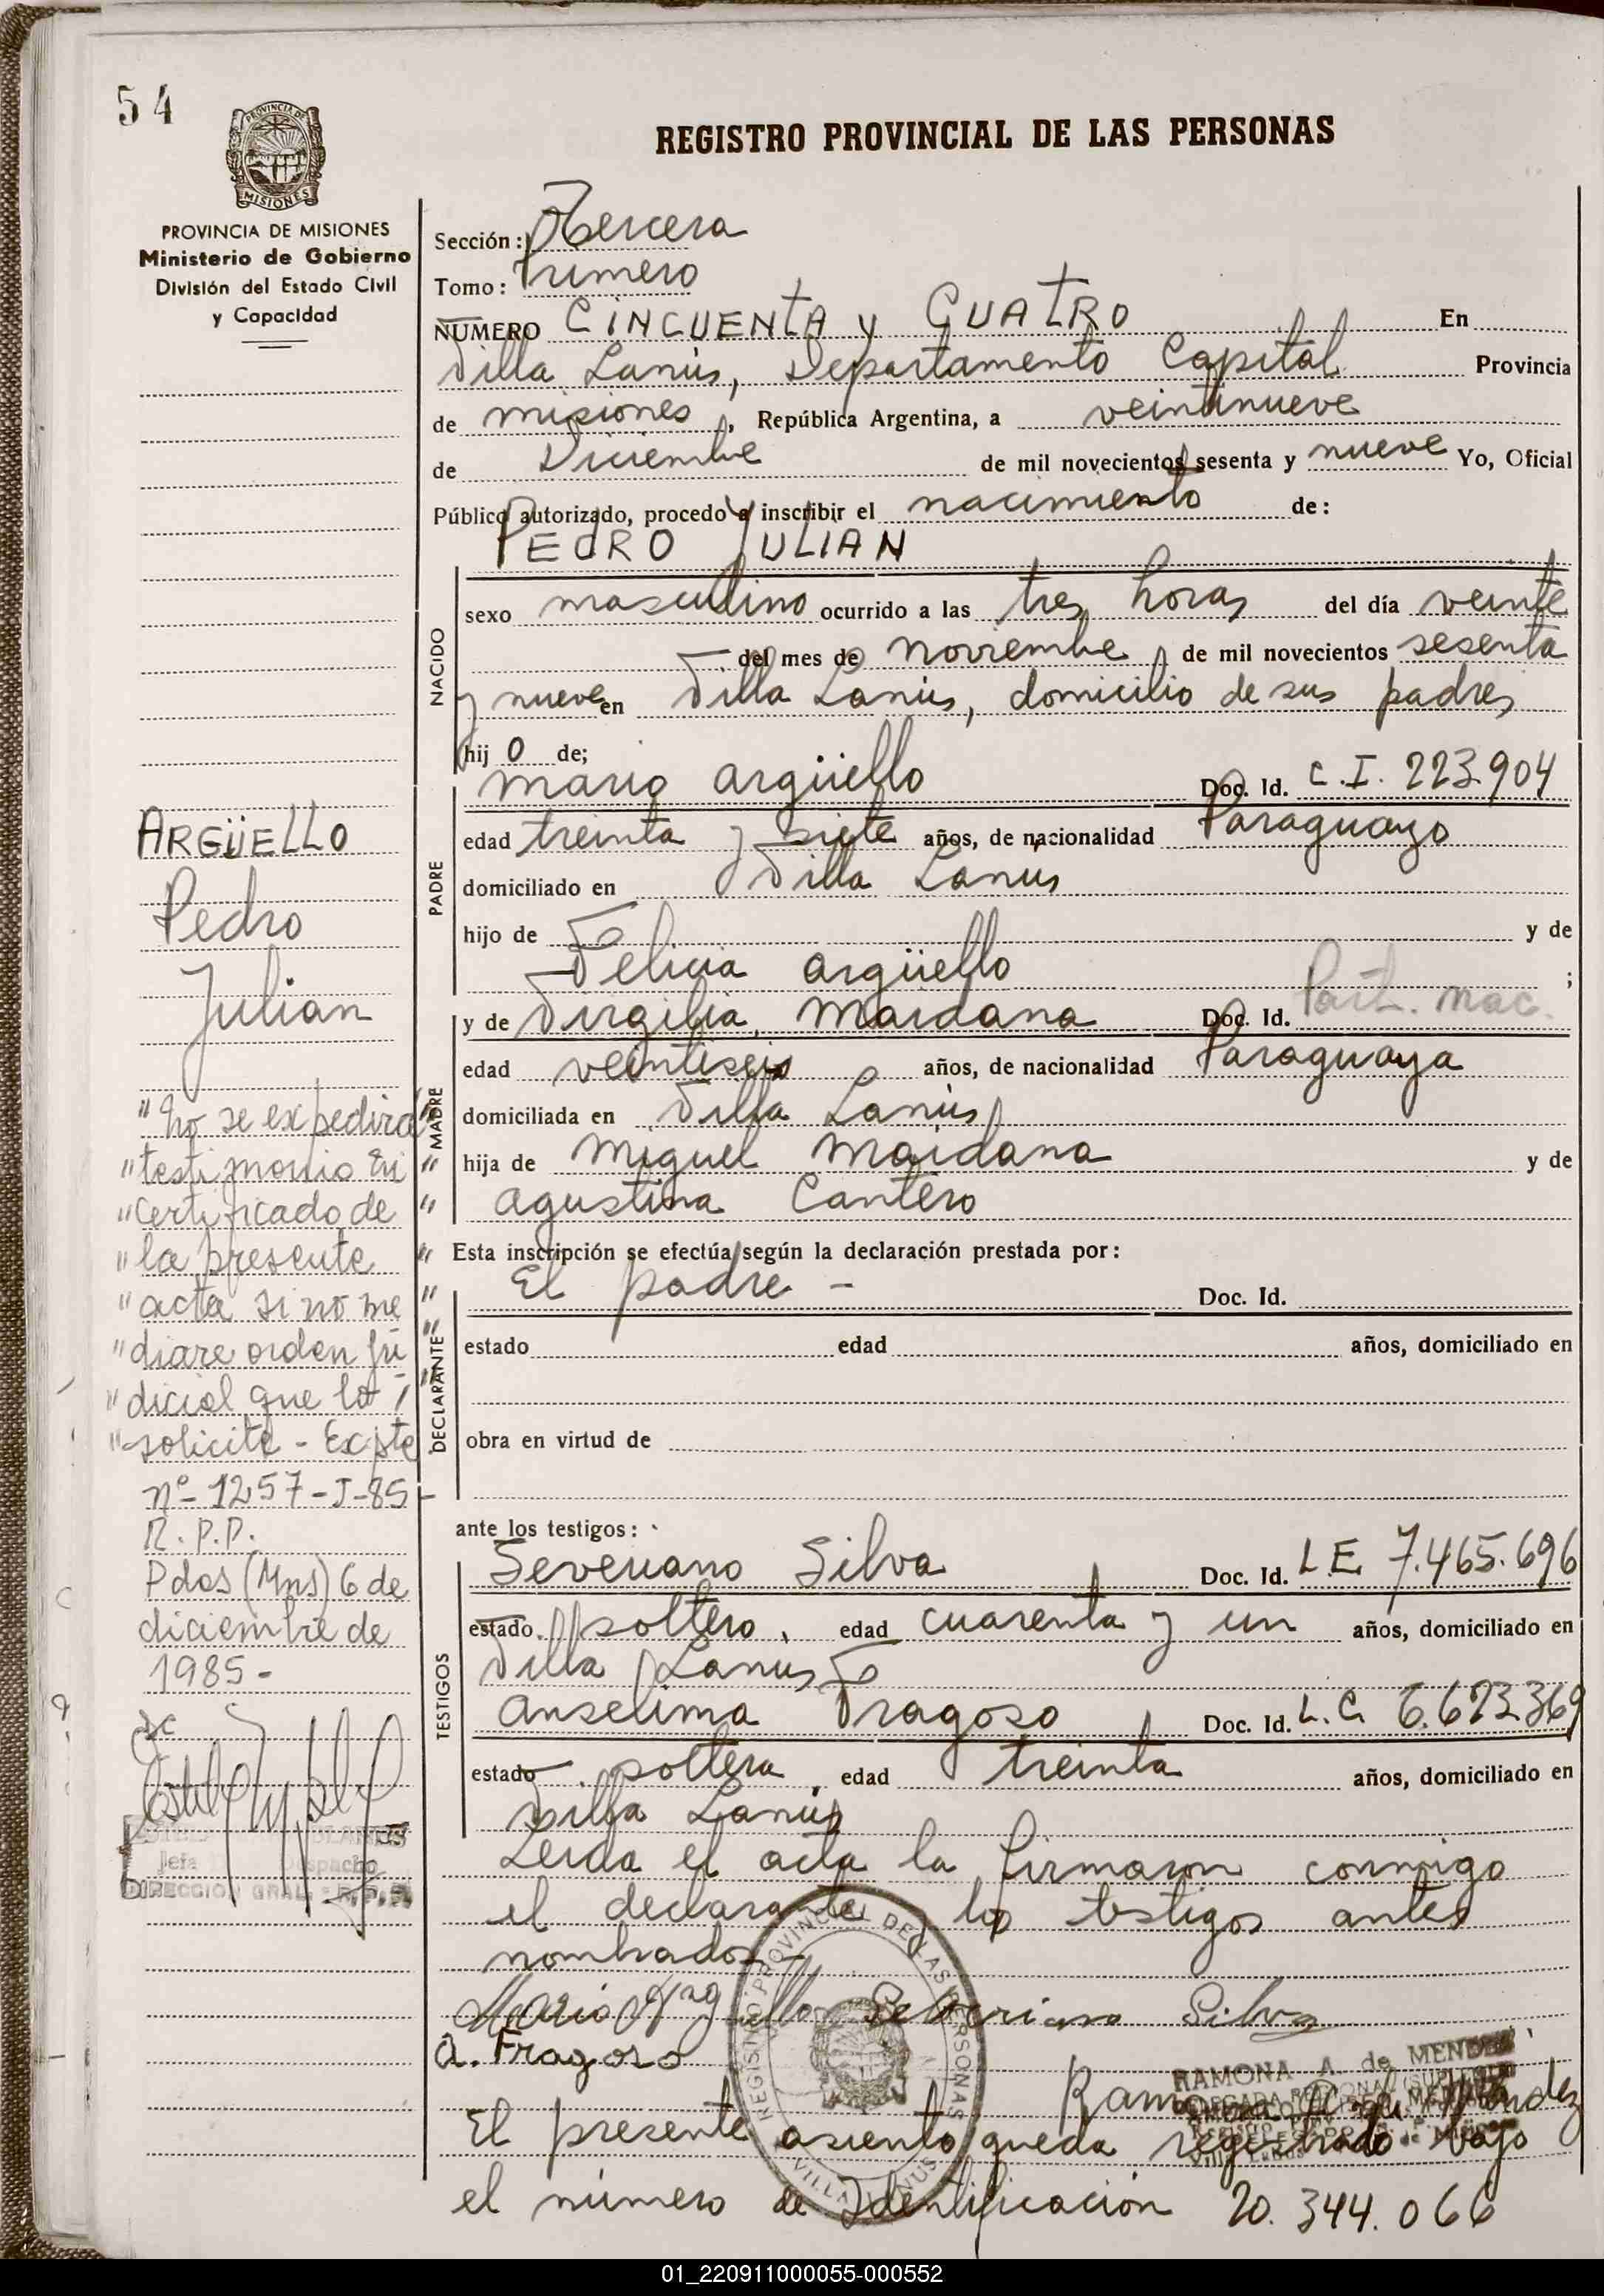 54
REGISTRO PROVINCIAL DE LAS PERSONAS
PROVINCIA DE MISIONES
Ministerio de Gobierno
División del Estado Civil
y Capacidad
Sección: Tercera
Tomo: Primero
NUMERO CINCUENTA y CUATRO En
Villa Lanús, Departamento Capital Provincia
de misiones, República Argentina, a veintinueve
de Diciembre de mil novecientos sesenta y nueve Yo, Oficial
Público autorizado, procedo a inscribir el nacimiento de:
PEDRO JULIAN
NACIDO
sexo masculino ocurrido a las tres horas del día veinte
del mes de noviembre de mil novecientos sesenta
y nueve en Villa Lanús, domicilio de sus padres
hijo de;
PADRE
mario argüello Doc. Id. C.I. 223.904
edad treinta y siete años, de nacionalidad Paraguayo
domiciliado en Villa Lanus
hijo de y de
Felicia argüello ;
MADRE
y de Virgilia, Maidana Doc. Id. Part. nac.
edad veintiseis años, de nacionalidad Paraguaya
domiciliada en Villa Lanús
hija de Miguel Maidana y de
agustina Cantero
Esta inscripción se efectúa según la declaración prestada por:
DECLARANTE
El padre - Doc. Id.
estado edad años, domiciliado en
obra en virtud de
ante los testigos:
TESTIGOS
Severiano Silva Doc. Id. L.E. 7.465.696
estado soltero, edad cuarenta y un años, domiciliado en
Villa Lanus
anselima Fragoso Doc. Id. L.C. 6.673.369
estado soltera, edad treinta años, domiciliado en
Villa Lanús
Leida el acta la firmaron conmigo
el declarante y los testigos antes
nombrados
Mario Arguello Severiano Silva
A. Fragoso
RAMONA A. de MENDEZ
El presente asiento queda registrado bajo
el número de Identificación 20.344.066
REGISTRO PROVINCIAL DE LAS PERSONAS
VILLA LANUS
ARGÜELLO
Pedro
Julian
"No se expedira"
"testimonio ni "
"certificado de "
"la presente "
"acta si no me "
"diare orden ju "
"dicial que lo "
"solicite - Expte
nº 1257-J-85-
R.P.P.
Pdas (Mns) 6 de
diciembre de
1985-
Jefa Despacho
DIRECCION GRAL. R.P.P.
01_220911000055-000552